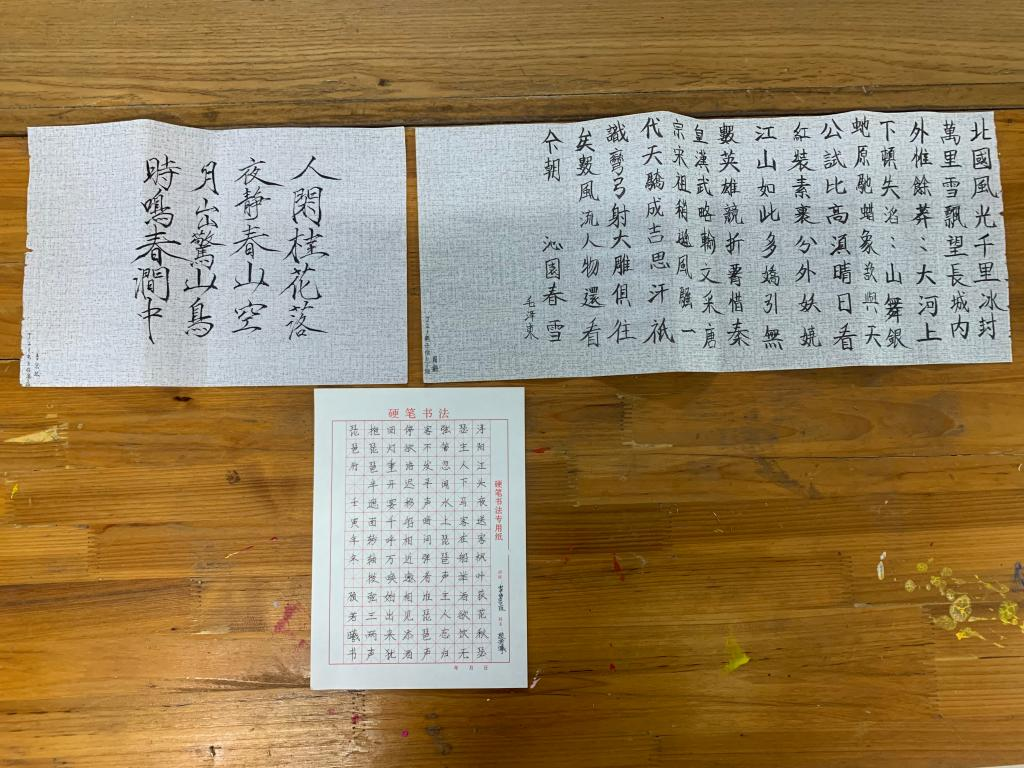 人閑桂花落
夜静春山空
月出驚山鳥
時鳴春澗中
北國風光千里冰封
萬里雪飄望長城内
外惟餘莽〻大河上
下頓失滔〻山舞銀
虵原馳蠟象欲與天
公試比高須晴日看
紅裝素裹分外妖嬈
江山如此多嬌引無
數英雄競折 惜秦
皇漢武略輸文采唐
宗宋祖稍遜風騷一
代天驕成吉思汗祇
識彎弓射大雕俱往
矣數風流人物還看
今朝 沁園春雪
毛泽东
硬笔书法
硬笔书法专用纸
浔阳江头夜送客枫叶荻花秋瑟
瑟主人下马客在船举酒欲饮无
强管忽闻水上琵琶声主人忘归
客不发寻声暗问弹者谁琵琶声
停欲语迟移船相近邀相见添酒
回灯重开宴千呼万唤始出来犹
抱琵琶半遮面转轴拨弦三两声
琵琶行 壬寅年冬 若曦书
年 月 日